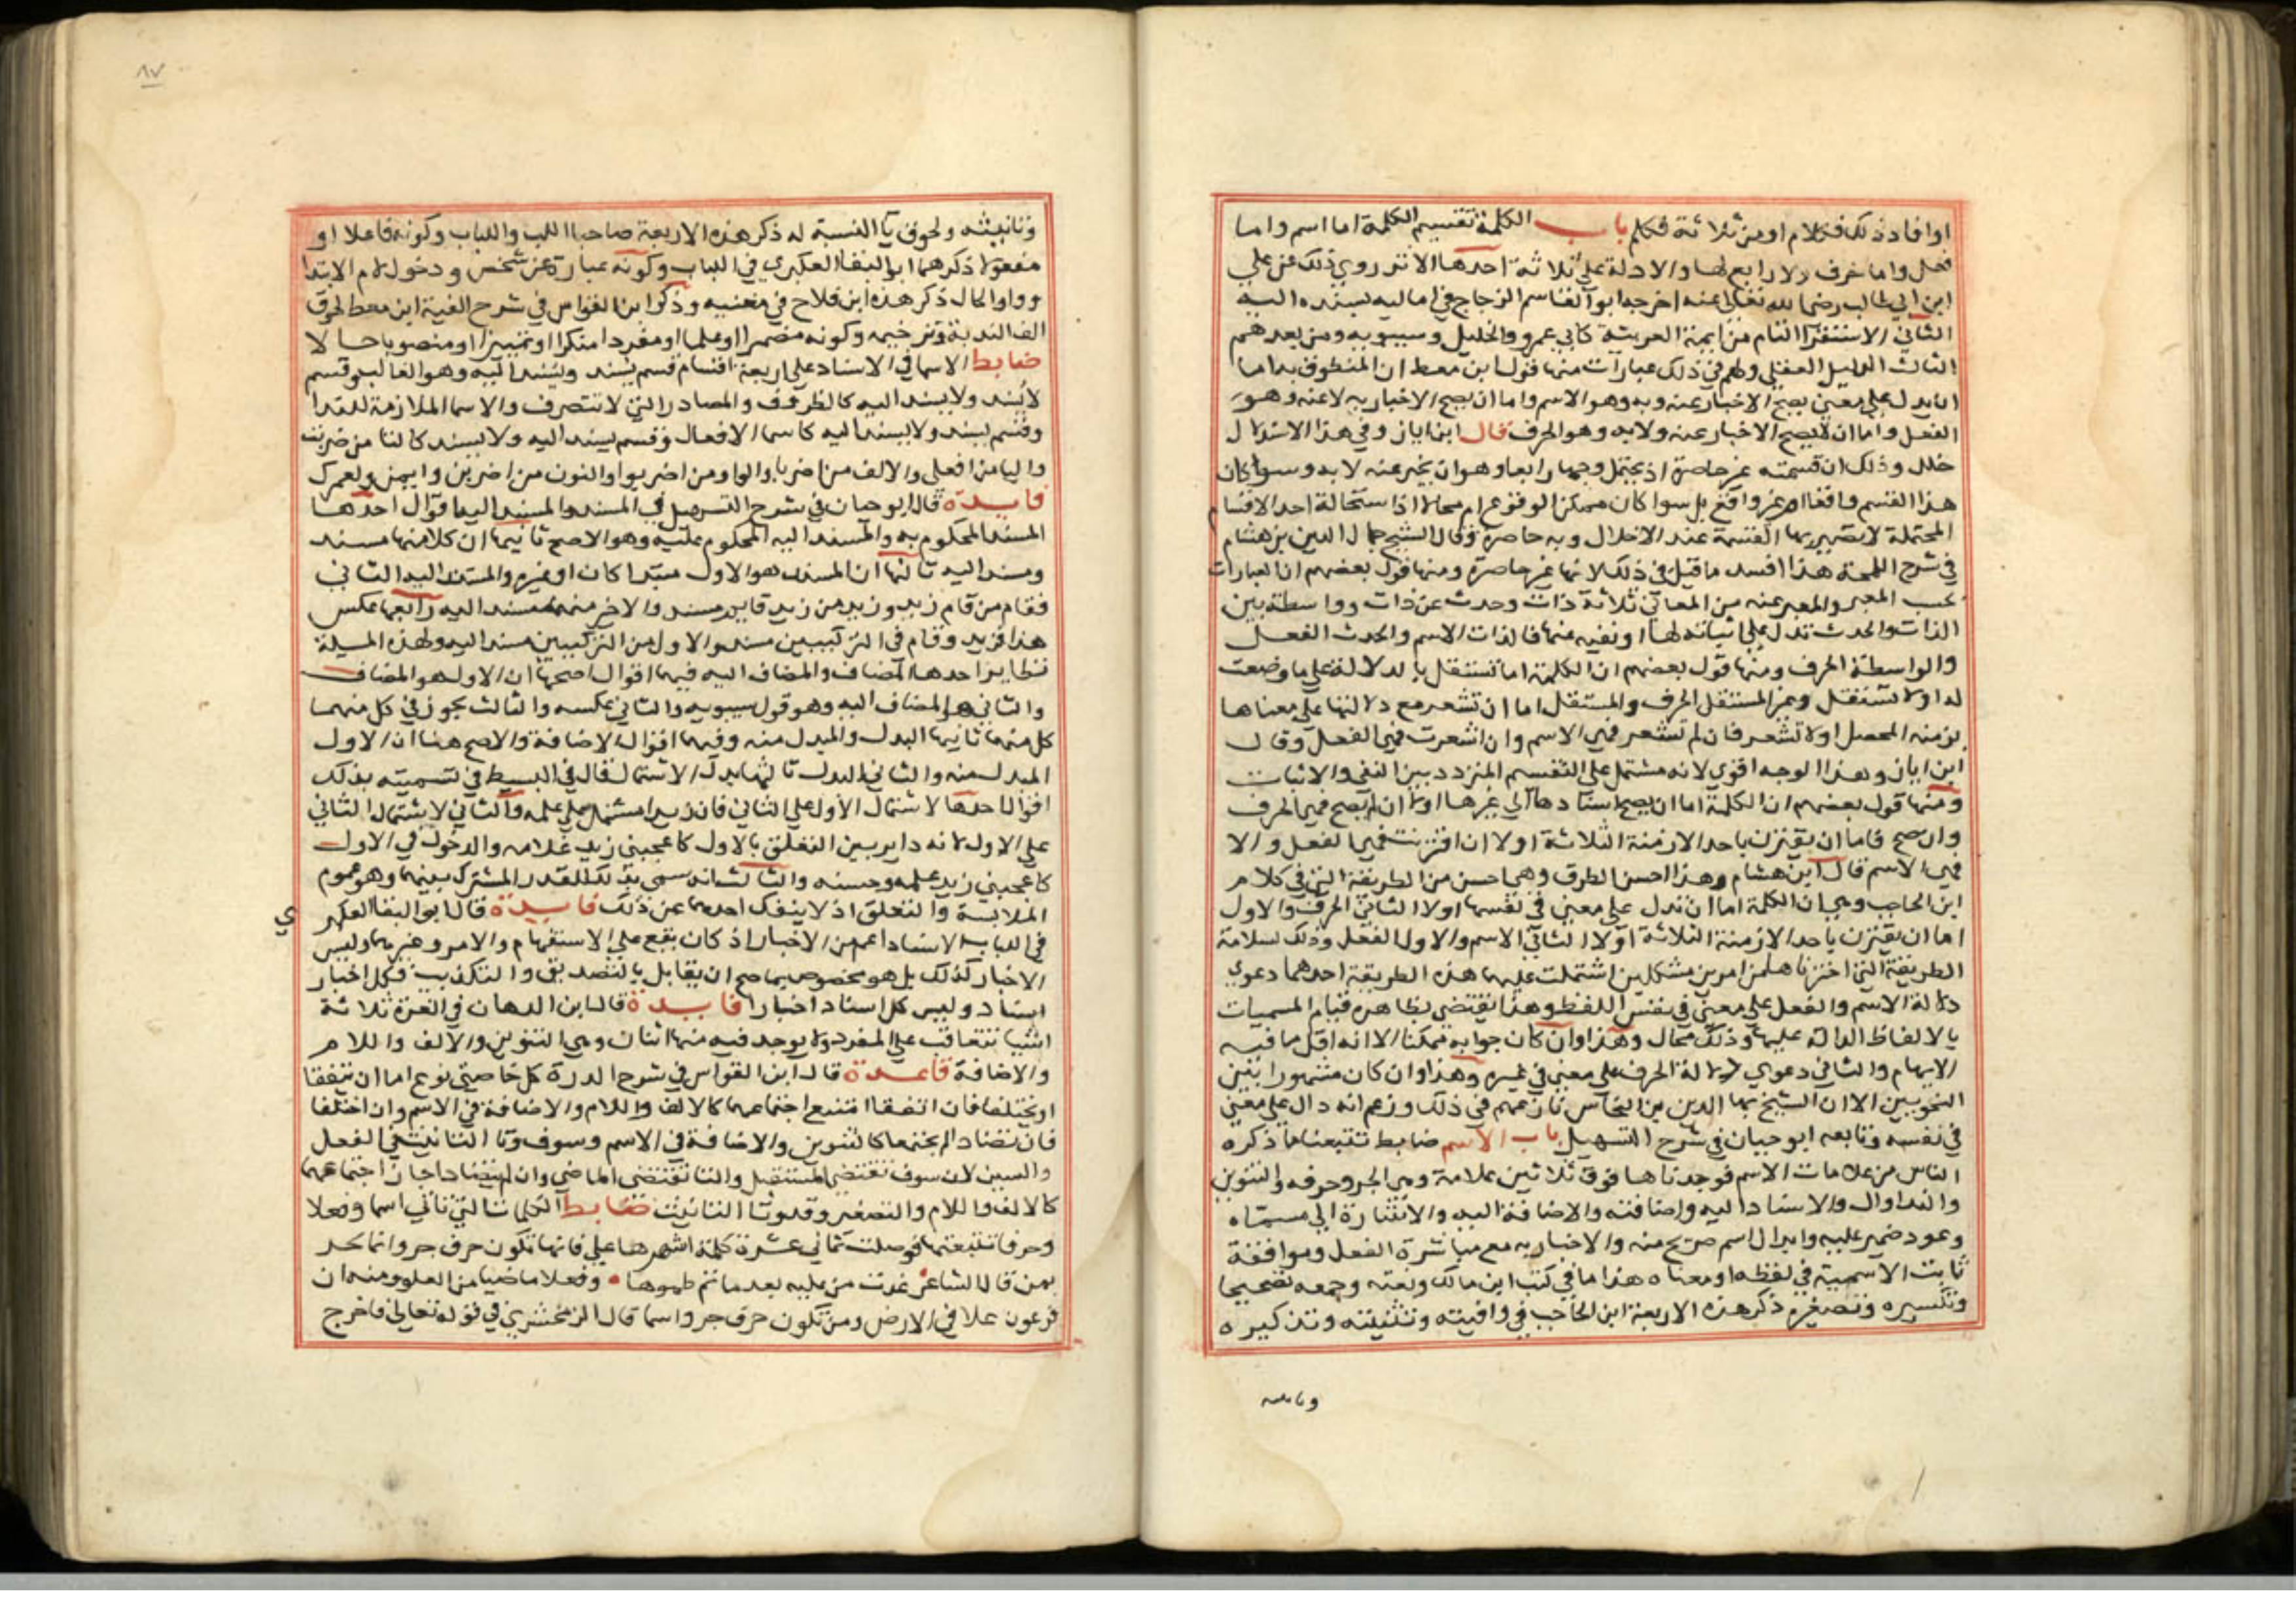 او افاد ذلك فكلام او من ثلاثة فكلم باب الكلمة تقسيم الكلمة اما اسم واما
فعل واما حرف ولا رابع لها والادلة على ثلاثة احدها الاثر روي ذلك عن علي
ابن ابي طالب رضي الله تعالى عنه اخرجه ابو القاسم الزجاج في اماليه بسنده اليه
الثاني الاستقرا التام من ايمة العربية كابي عمرو والخليل وسيبويه ومن بعدهم
الثالث الدليل العقلي ولهم في ذلك عبارات منها قول ابن معط ان المنطوق به اما
ان يدل على معنى يصح الاخبار عنه وبه وهو الاسم واما ان يصح الاخبار به لا عنه وهو
الفعل واما ان لا يصح الاخبار عنه ولا به وهو الحرف قال ابن اياز وفي هذا الاستدلال
خلل وذلك ان قسمته غير حاصرة اذ يحتمل وجها رابعا وهو ان يخبر عنه لا به وسوا كان
هذا القسم واقعا ام غير واقع بل سوا كان ممكن الوقوع ام محالا اذ استحالة احد الاقسام
المحتملة لا تصير بها القسمة عند الاخلال به حاصرة وقال الشيخ جمال الدين بن هشام
في شرح اللمحة هذا افسد ما قيل في ذلك لانها غير حاصرة ومنها قول بعضهم ان العبارات
بحسب المعبر والمعبر عنه من المعاني ثلاثة ذات وحدث عن ذات وواسطة بين
الذات والحدث تدل على اثباته لها او نفيه عنها فالذات الاسم والحدث الفعل
والواسطة الحرف ومنها قول بعضهم ان الكلمة اما تستقل بالدلالة على ما وضعت
له او لا تستقل وغير المستقل الحرف والمستقل اما ان تشعر مع دلالتها على معناها
بزمنه المحصل او لا تشعر فان لم تشعر فهي الاسم وان اشعرت فهي الفعل وقال
ابن اياز وهذا الوجه اقوى لانه مشتمل على التقسيم المتردد بين النفي والاثبات
ومنها قول بعضهم ان الكلمة اما ان يصح اسنادها الى غيرها اولا ان لم يصح فهي الحرف
وان صح فاما ان يقترن باحد الازمنة الثلاثة اولا ان اقترنت فهي الفعل والا
فهي الاسم قال ابن هشام وهذا احسن الطرق وهي احسن من الطريقة التي في كلام
ابن الحاجب وهي ان الكلمة اما ان تدل على معنى في نفسها اولا الثاني الحرف والاول
اما ان يقترن باحد الازمنة الثلاثة اولا الثاني الاسم والاول الفعل وذلك لسلامة
الطريقة التي اخترناها من امرين مشكلين اشتملت عليهما هذه الطريقة احدهما دعوى
دلالة الاسم والفعل على معنى في نفس اللفظ وهذا يقتضي بظاهره قيام المسميات
بالالفاظ الدالة عليها وذلك محال وهذا وان كان جوابه ممكنا الا انه اقل ما فيه
الايهام والثاني دعوى دلالة الحرف على معنى في غيره وهذا وان كان مشهورا بين
النحويين الا ان الشيخ بها الدين بن النحاس نازعهم في ذلك وزعم انه دال على معنى
في نفسه وتابعه ابو حيان في شرح التسهيل باب الاسم ضابط تتبعنا ما ذكره
الناس من علامات الاسم فوجدناها فوق ثلاثين علامة وهي الجر وحروفه والتنوين
والندا وال والاسناد اليه واضافته والاضافة اليه والاشارة الى مسماه
وعود ضمير عليه وابدال اسم صريح منه والاخبار به مع مباشرة الفعل وموافقة
ثابت الاسمية في لفظه او معناه هذا ما في كتب ابن مالك ونعته وجمعه تصحيحا
وتكسيره وتصغيره ذكر هذه الاربعة ابن الحاجب في وافيته وتثنيته وتذكيره
وتانيثه
٨٧
وتانيثه ولحوق يا النسبة له ذكر هذه الاربعة صاحبا اللب واللباب وكونه فاعلا او
مفعولا ذكرهما ابو البقا العكبري في اللباب وكونه عبارة عن شخص ودخول لام الابتدا
وواو الحال ذكر هذه ابن فلاح في مغنيه وذكر ابن القواس في شرح الفية ابن معط لحوق
الف الندبة وترخيمه وكونه مضمرا او علما او مفردا منكرا او تمييزا او منصوبا حالا
ضابط الاسما في الاسناد على اربعة اقسام قسم يسند ويسند اليه وهو الغالب وقسم
لا يسند ولا يسند اليه كالظروف والمصادر التي لا تتصرف والاسما الملازمة للندا
وقسم يسند ولا يسند اليه كاسما الافعال وقسم يسند اليه ولا يسند كالتا من ضربت
واليا من افعلي والالف من اضربا والواو من اضربوا والنون من اضربن وايمن ولعمرك
فايدة قال ابو حيان في شرح التسهيل في المسند والمسند اليه اقوال احدها
المسند المحكوم به والمسند اليه المحكوم عليه وهو الاصح ثانيها ان كلا منهما مسند
ومسند اليه ثالثها ان المسند هو الاول مبتدا كان او غيره والمسند اليه الثاني
فقام من قام زيد وزيد من زيد قايم مسند والاخير منهما مسند اليه رابعها عكس
هذا فزيد وقام في التركيبين مسند والاول من التركيبين مسند اليه ولهذه المسيلة
نظاير احدها المضاف والمضاف اليه فيها اقوال اصحها ان الاول هو المضاف
والثاني هو المضاف اليه وهو قول سيبويه والثاني عكسه والثالث يجوز في كل منهما
كل منهما ثانيها البدل والمبدل منه وفيها اقوال الاضافة والاصح هنا ان الاول
المبدل منه والثاني البدل ثالثها بدل الاشتمال قال في البسيط في تسميته بذلك
اقوال احدها لاشتمال الاول على الثاني فان زيدا مشتمل على علمه والثاني لاشتمال الثاني
على الاول لانه داير بين التعلق بالاول كاعجبني زيد غلامه والدخول في الاول
كاعجبني زيد علمه وحسنه والثالث انه سمي بذلك للقدر المشترك بينهما وهو عموم
الملابسة والتعلق اذ لا ينفك احدهما عن ذلك فايدة قال ابو البقا العكبري
في اللباب الاسناد اعم من الاخبار اذ كان يقع على الاستفهام والامر وغيرهما وليس
الاخبار كذلك بل هو مخصوص بما صح ان يقابل بالتصديق والتكذيب فكل اخبار
اسناد وليس كل اسناد اخبارا فايدة قال ابن الدهان في الغرة ثلاثة
اشيا تتعاقب على المفرد ولا يوجد فيه منها اثنان وهي التنوين والالف واللام
والاضافة قاعدة قال ابن القواس في شرح الدرة كل خاصتي نوع اما ان تتفقا
او تختلفا فان اتفقا امتنع اجتماعهما كالالف واللام والاضافة في الاسم وان اختلفا
فان تضادا لم يجتمعا كالتنوين والاضافة في الاسم وسوف وتا التانيث في الفعل
والسين لان سوف تقتضي المستقبل والتا تقتضي الماضي وان لم يتضادا جاز اجتماعهما
كالالف واللام والتصغير وقد وتا التانيث ضابط الكلمات التي تاتي اسما وفعلا
وحرفا تتبعتها فوصلت ثماني عشرة كلمة اشهرها على فانها تكون حرف جر واسما تجر
بمن قال الشاعر غدت من عليه بعد ما تم ظموها وفعلا ماضيا من العلو ومنه ان
فرعون علا في الارض ومن تكون حرف جر واسما قال الزمخشري في قوله تعالى فاخرج